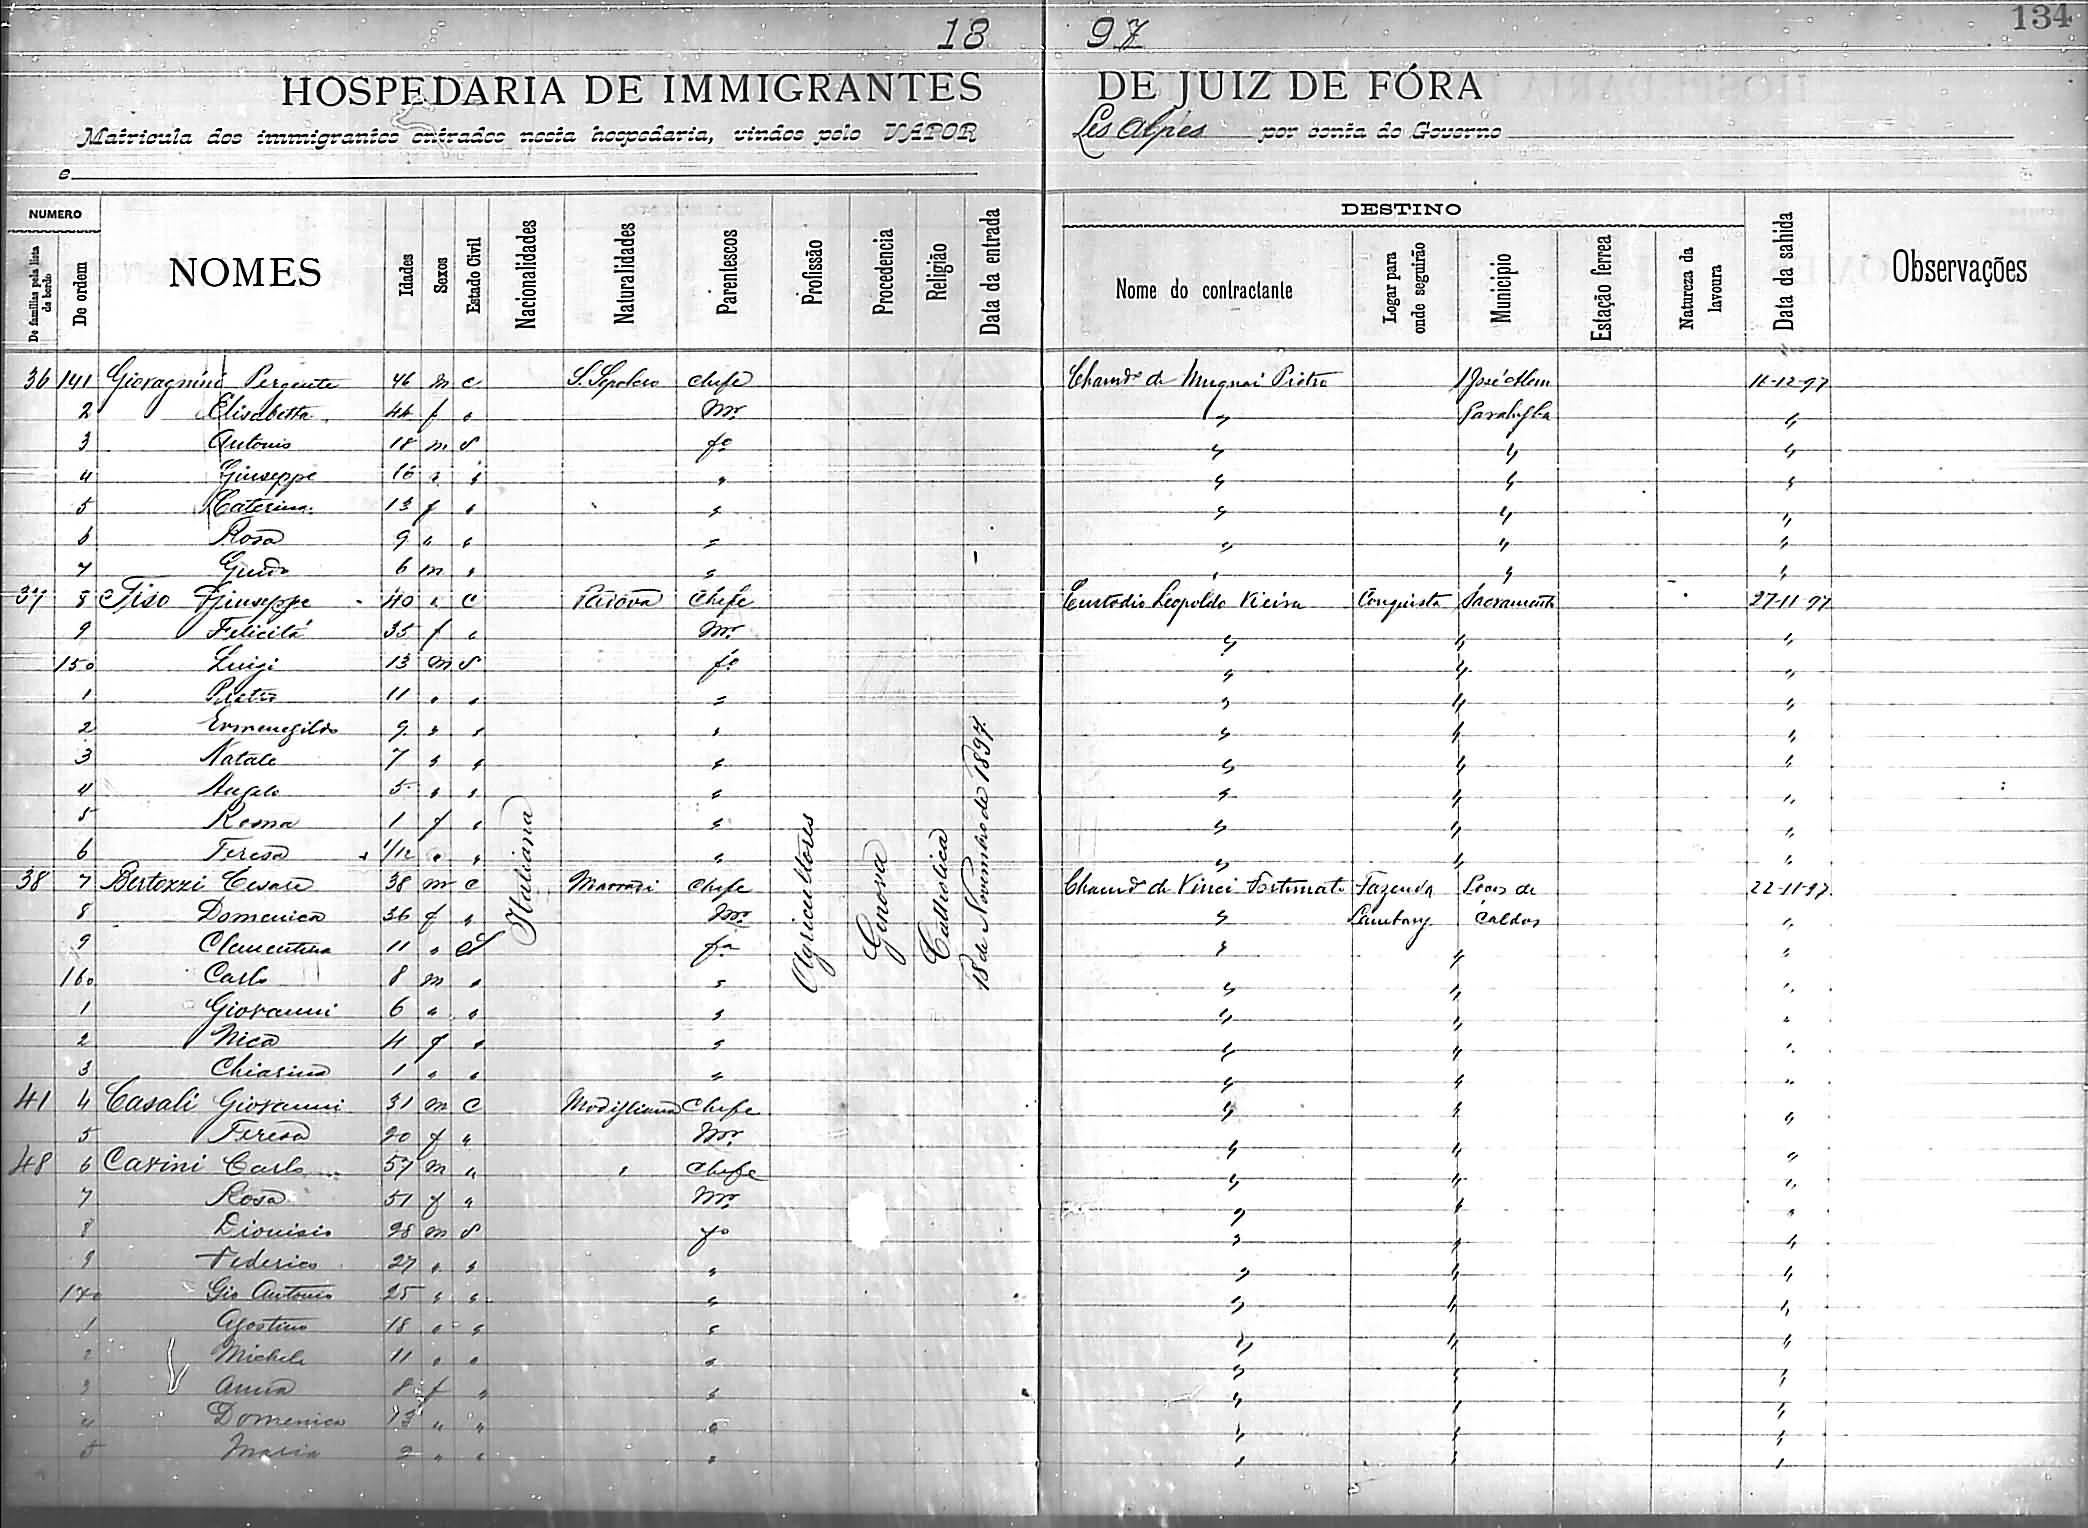 134
18 97
HOSPEDARIA DE IMMIGRANTES DE JUIZ DE FÓRA
Matricula dos immigrantes entrados nesta hospedaria, vindos pelo VAPOR Les Alpes por conta do Governo
e
NUMERO
De familias pela lista de bordo
De ordem
NOMES
Idades
Sexos
Estado Civil
Nacionalidades
Naturalidades
Parentescos
Profissão
Procedencia
Religião
Data da entrada
DESTINO
Nome do contractante
Logar para onde seguirão
Municipio
Estação ferrea
Natureza da lavoura
Data da sahida
Observações
36 141 Giovagnini Pergente 46 m c S. Sepolcro Chefe Chamdo de Mugnai Pietro José Alem 11-12-97
2 Elisabetta 44 f " Mr. " Parahyba "
3 Antonio 18 m S fo " " "
4 Giuseppe 16 " " " " " "
5 Caterina 13 f " " " " "
6 Rosa 9 " " " " " "
7 Guido 6 m " " " " "
37 8 Tiso Giuseppe 40 " C Padova Chefe Custodio Leopoldo Vieira Conquista Sacramento 27-11-97
9 Felicitá 35 f " Mr. " " "
150 Luigi 13 m S fo " " "
1 Pietro 11 " " " " " "
2 Ermenegildo 9 " " " " " "
3 Natale 7 " " " " " "
4 Angelo 5 " " " " " "
5 1 f " " " " "
6 Teresa 1/12 " " " " "
38 7 Bertozzi Cesare 38 m c Marradi Chefe Chamdo de Vinci Fortunato Fazenda Poços de 22-11-97
8 Domenica 36 f " Mr. " Caldas "
9 Clementina 11 " S fa " " "
160 Carlo 8 m " " " " "
1 Giovanni 6 " " " " " "
2 Nica 4 f " " " " "
3 Chiarina 1 " " " " " "
41 4 Casali Giovanni 31 m C Modigliana Chefe " " "
5 Teresa 20 f " Mr. " " "
48 6 Carini Carlo 57 m " " Chefe " " "
7 Rosa 51 f " Mr. " " "
8 Dionisio 28 m S fo " " "
9 Federico 27 " " " " " "
170 Gio Antonio 25 " " " " " "
1 Agostino 18 " " " " " "
2 Michele 11 " " " " " "
3 Anna 8 f " " " " "
4 Domenica 13 " " " " " "
5 Maria 2 " " " " " "
Italiana
Agricultores
Genova
Catholica
18 de Novembro de 1897